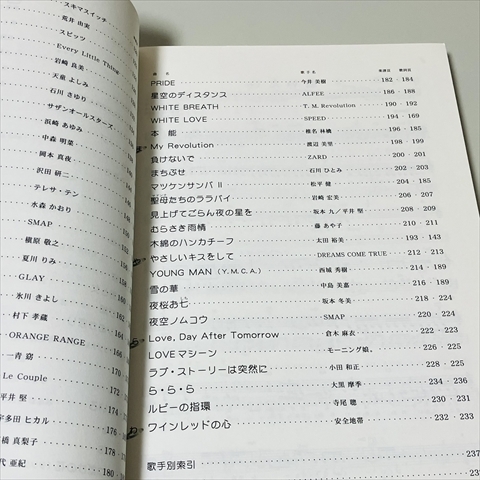 スキマスイッチ
荒井 由実
スピッツ
Every Little Thing
岩崎 良美
天童 よしみ
石川 さゆり
サザンオールスターズ
浜崎 あゆみ
中森 明菜
岡本 真夜
沢田 研一
テレサ・テン
水森 かおり
SMAP
槇原 敬之
夏川 りみ
GLAY
氷川 きよし
村下 孝蔵
ORANGE RANGE
一青 窈 170
Le Couple 172
平井 堅 174
宇多田 ヒカル 176
橋 真梨子 178
代 亜紀 180
曲 名 歌 手 名 楽譜頁 歌詞頁
PRIDE 今井 美樹 182・184
星空のディスタンス ALFEE 186・188
WHITE BREATH T. M. Revolution 190・192
WHITE LOVE SPEED 194・169
本 能 椎名 林檎 196・185
My Revolution 渡辺 美里 198・188
負けないで ZARD 200・201
まちぶせ 石川 ひとみ 202・203
マッケンサンバ II 松平 健 204・185
聖母たちのララバイ 岩崎 宏美 206・207
見上げてごらん夜の星を 坂本 九/平井 堅 208・209
むらさき雨情 藤 あや子 210・211
木綿のハンカチーフ 太田 裕美 193・143
やさしいキスをして DREAMS COME TRUE 212・213
YOUNG MAN (Y. M. C. A.) 西城 秀樹 214・189
雪の華 中島 美嘉 216・189
夜桜お七 坂本 冬美 218・224
夜空ノムコウ SMAP 220・221
Love, Day After Tomorrow 倉木 麻衣 222・223
LOVEマシーン モーニング娘。 226・225
ラブ・ストーリーは突然に 小田 和正 228・225
ら・ら・ら 大黒 摩季 234・236
ルビーの指環 寺尾 聰 230・231
ワインレッドの心 安全地帯 232・233
歌手別索引 237